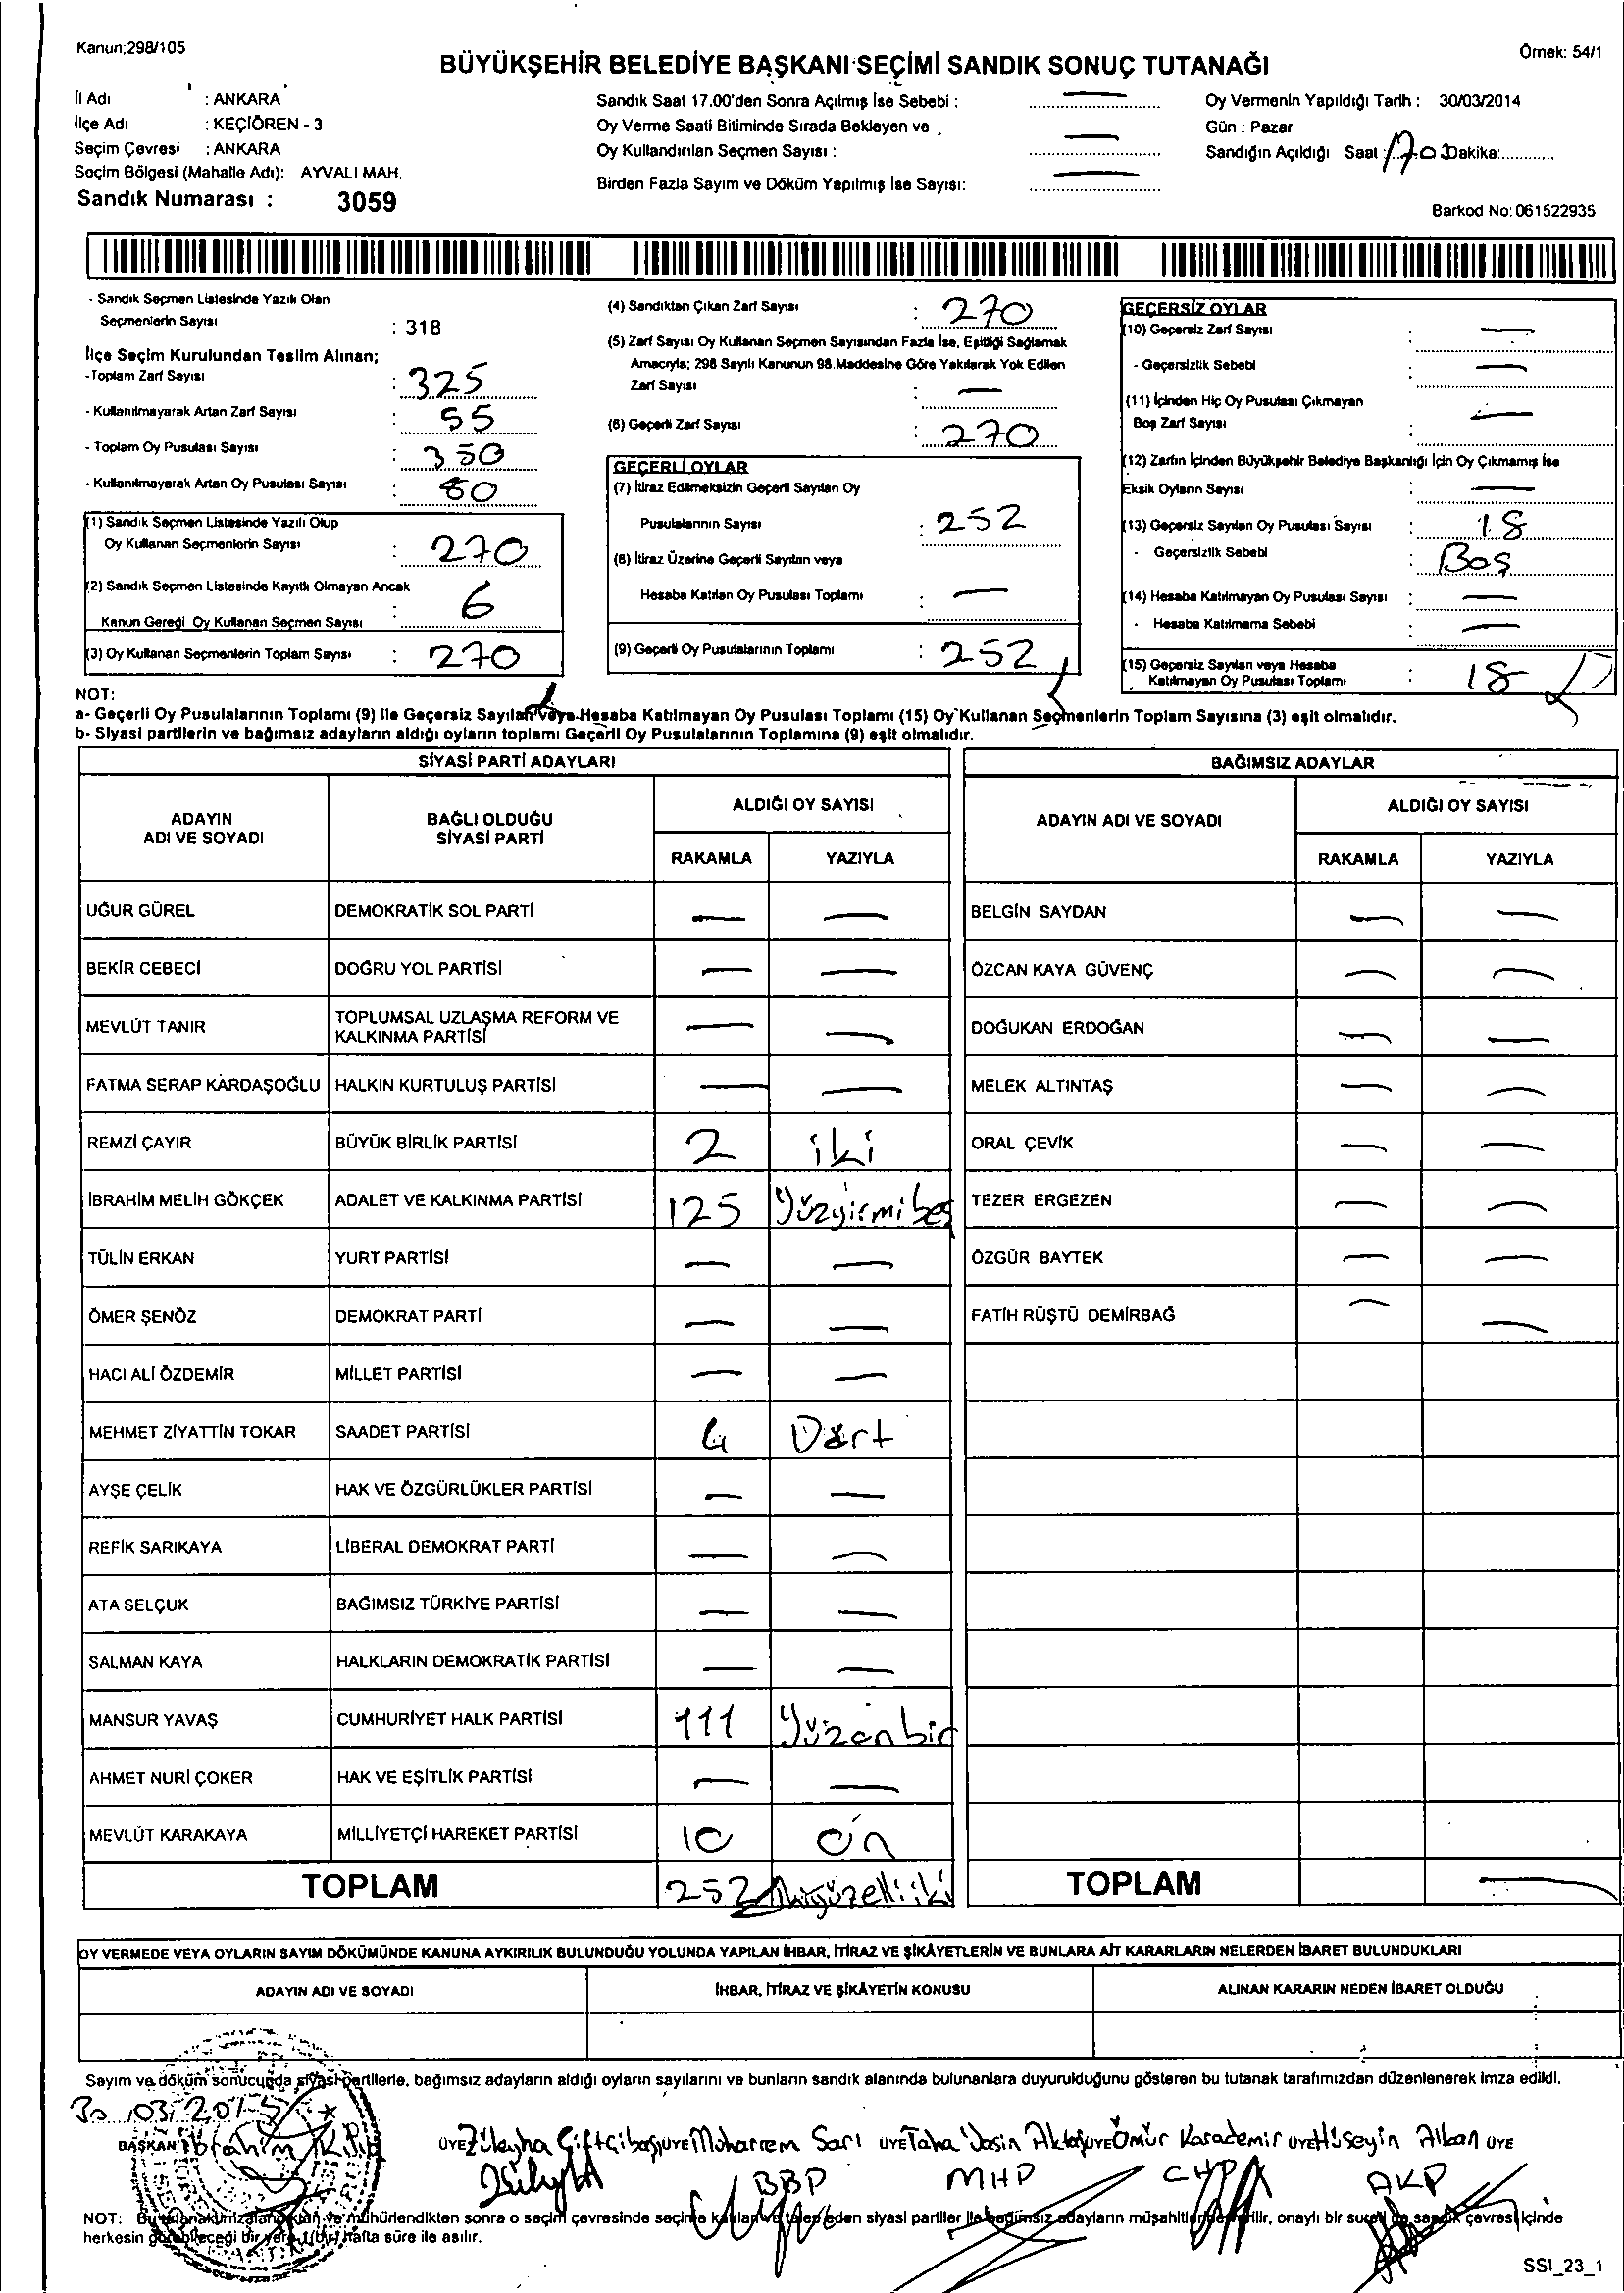 Kanun;298/105
Örnek: 54/1
BÜYÜKŞEHİR BELEDİYE BAŞKANI SEÇİMİ SANDIK SONUÇ TUTANAĞI
İl Adı : ANKARA
İlçe Adı : KEÇİÖREN - 3
Seçim Çevresi : ANKARA
Seçim Bölgesi (Mahalle Adı): AYVALI MAH.
Sandık Numarası : 3059
Sandık Saat 17.00'den Sonra Açılmış İse Sebebi : —
Oy Verme Saati Bitiminde Sırada Bekleyen ve
Oy Kullandırılan Seçmen Sayısı : —
Birden Fazla Sayım ve Döküm Yapılmış İse Sayısı: —
Oy Vermenin Yapıldığı Tarih : 30/03/2014
Gün : Pazar
Sandığın Açıldığı Saat : Dakika:
Barkod No: 061522935
- Sandık Seçmen Listesinde Yazılı Olan
Seçmenlerin Sayısı : 318
İlçe Seçim Kurulundan Teslim Alınan;
-Toplam Zarf Sayısı : 325
- Kullanılmayarak Artan Zarf Sayısı : 55
- Toplam Oy Pusulası Sayısı : 350
- Kullanılmayarak Artan Oy Pusulası Sayısı : 80
(1) Sandık Seçmen Listesinde Yazılı Olup
Oy Kullanan Seçmenlerin Sayısı : 270
(2) Sandık Seçmen Listesinde Kayıtlı Olmayan Ancak
Kanun Gereği Oy Kullanan Seçmen Sayısı : 6
(3) Oy Kullanan Seçmenlerin Toplam Sayısı : 270
(4) Sandıktan Çıkan Zarf Sayısı : 270
(5) Zarf Sayısı Oy Kullanan Seçmen Sayısından Fazla İse, Eşitliği Sağlamak
Amacıyla; 298 Sayılı Kanunun 98.Maddesine Göre Yakılarak Yok Edilen
Zarf Sayısı : —
(6) Geçerli Zarf Sayısı : 270
GEÇERLİ OYLAR
(7) İtiraz Edilmeksizin Geçerli Sayılan Oy
Pusulalarının Sayısı : 252
(8) İtiraz Üzerine Geçerli Sayılan veya
Hesaba Katılan Oy Pusulası Toplamı : —
(9) Geçerli Oy Pusulalarının Toplamı : 252
GEÇERSİZ OYLAR
(10) Geçersiz Zarf Sayısı : —
- Geçersizlik Sebebi : —
(11) İçinden Hiç Oy Pusulası Çıkmayan
Boş Zarf Sayısı : —
(12) Zarfın İçinden Büyükşehir Belediye Başkanlığı İçin Oy Çıkmamış İse
Eksik Oyların Sayısı : —
(13) Geçersiz Sayılan Oy Pusulası Sayısı : 18
- Geçersizlik Sebebi : Boş
(14) Hesaba Katılmayan Oy Pusulası Sayısı : —
- Hesaba Katılmama Sebebi : —
(15) Geçersiz Sayılan veya Hesaba
Katılmayan Oy Pusulası Toplamı : 18
NOT:
a- Geçerli Oy Pusulalarının Toplamı (9) ile Geçersiz Sayılan veya Hesaba Katılmayan Oy Pusulası Toplamı (15) Oy Kullanan Seçmenlerin Toplam Sayısına (3) eşit olmalıdır.
b- Siyasi partilerin ve bağımsız adayların aldığı oyların toplamı Geçerli Oy Pusulalarının Toplamına (9) eşit olmalıdır.
SİYASİ PARTİ ADAYLARI
ADAYIN ADI VE SOYADI BAĞLI OLDUĞU SİYASİ PARTİ ALDIĞI OY SAYISI
RAKAMLA YAZIYLA
UĞUR GÜREL DEMOKRATİK SOL PARTİ — —
BEKİR CEBECİ DOĞRU YOL PARTİSİ — —
MEVLÜT TANIR TOPLUMSAL UZLAŞMA REFORM VE KALKINMA PARTİSİ — —
FATMA SERAP KARDAŞOĞLU HALKIN KURTULUŞ PARTİSİ — —
REMZİ ÇAYIR BÜYÜK BİRLİK PARTİSİ 2 iki
İBRAHİM MELİH GÖKÇEK ADALET VE KALKINMA PARTİSİ 125 Yüzyirmibeş
TÜLİN ERKAN YURT PARTİSİ — —
ÖMER ŞENÖZ DEMOKRAT PARTİ — —
HACI ALİ ÖZDEMİR MİLLET PARTİSİ — —
MEHMET ZİYATTİN TOKAR SAADET PARTİSİ 4 Dört
AYŞE ÇELİK HAK VE ÖZGÜRLÜKLER PARTİSİ — —
REFİK SARIKAYA LİBERAL DEMOKRAT PARTİ — —
ATA SELÇUK BAĞIMSIZ TÜRKİYE PARTİSİ — —
SALMAN KAYA HALKLARIN DEMOKRATİK PARTİSİ — —
MANSUR YAVAŞ CUMHURİYET HALK PARTİSİ 111 Yüzonbir
AHMET NURİ ÇOKER HAK VE EŞİTLİK PARTİSİ — —
MEVLÜT KARAKAYA MİLLİYETÇİ HAREKET PARTİSİ 10 on
TOPLAM 252 ikiyüzelliiki
BAĞIMSIZ ADAYLAR
ADAYIN ADI VE SOYADI ALDIĞI OY SAYISI
RAKAMLA YAZIYLA
BELGİN SAYDAN — —
ÖZCAN KAYA GÜVENÇ — —
DOĞUKAN ERDOĞAN — —
MELEK ALTINTAŞ — —
ORAL ÇEVİK — —
TEZER ERGEZEN — —
ÖZGÜR BAYTEK — —
FATİH RÜŞTÜ DEMİRBAĞ — —
TOPLAM —
OY VERMEDE VEYA OYLARIN SAYIM DÖKÜMÜNDE KANUNA AYKIRILIK BULUNDUĞU YOLUNDA YAPILAN İHBAR, İTİRAZ VE ŞİKÂYETLERİN VE BUNLARA AİT KARARLARIN NELERDEN İBARET BULUNDUKLARI
ADAYIN ADI VE SOYADI İHBAR, İTİRAZ VE ŞİKÂYETİN KONUSU ALINAN KARARIN NEDEN İBARET OLDUĞU
Sayım ve döküm sonucunda siyasi partilerle, bağımsız adayların aldığı oyların sayılarını ve bunların sandık alanında bulunanlara duyurulduğunu gösteren bu tutanak tarafımızdan düzenlenerek imza edildi.
BAŞKAN İbrahim ÜYE Züleyha Çiftçibaşı ÜYE Muharrem Sarı ÜYE Taha Yasin Aktaş ÜYE Ömür Karademir ÜYE Hüseyin Alkan ÜYE
BBP MHP CHP AKP
NOT: Bu tutanak imzalandıktan ve mühürlendikten sonra o seçim çevresinde seçime katılan ve talep eden siyasi partiler ile bağımsız adayların müşahitlerine verilir, onaylı bir sureti de sandık çevresi içinde
herkesin görebileceği bir yere 1 (bir) hafta süre ile asılır.
SSİ_23_1